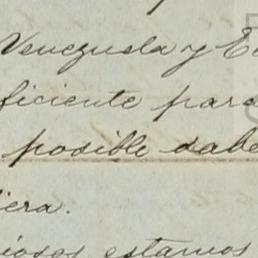 Venezuela y E
ficiente para
posible sabe
iera.
iosos estamos